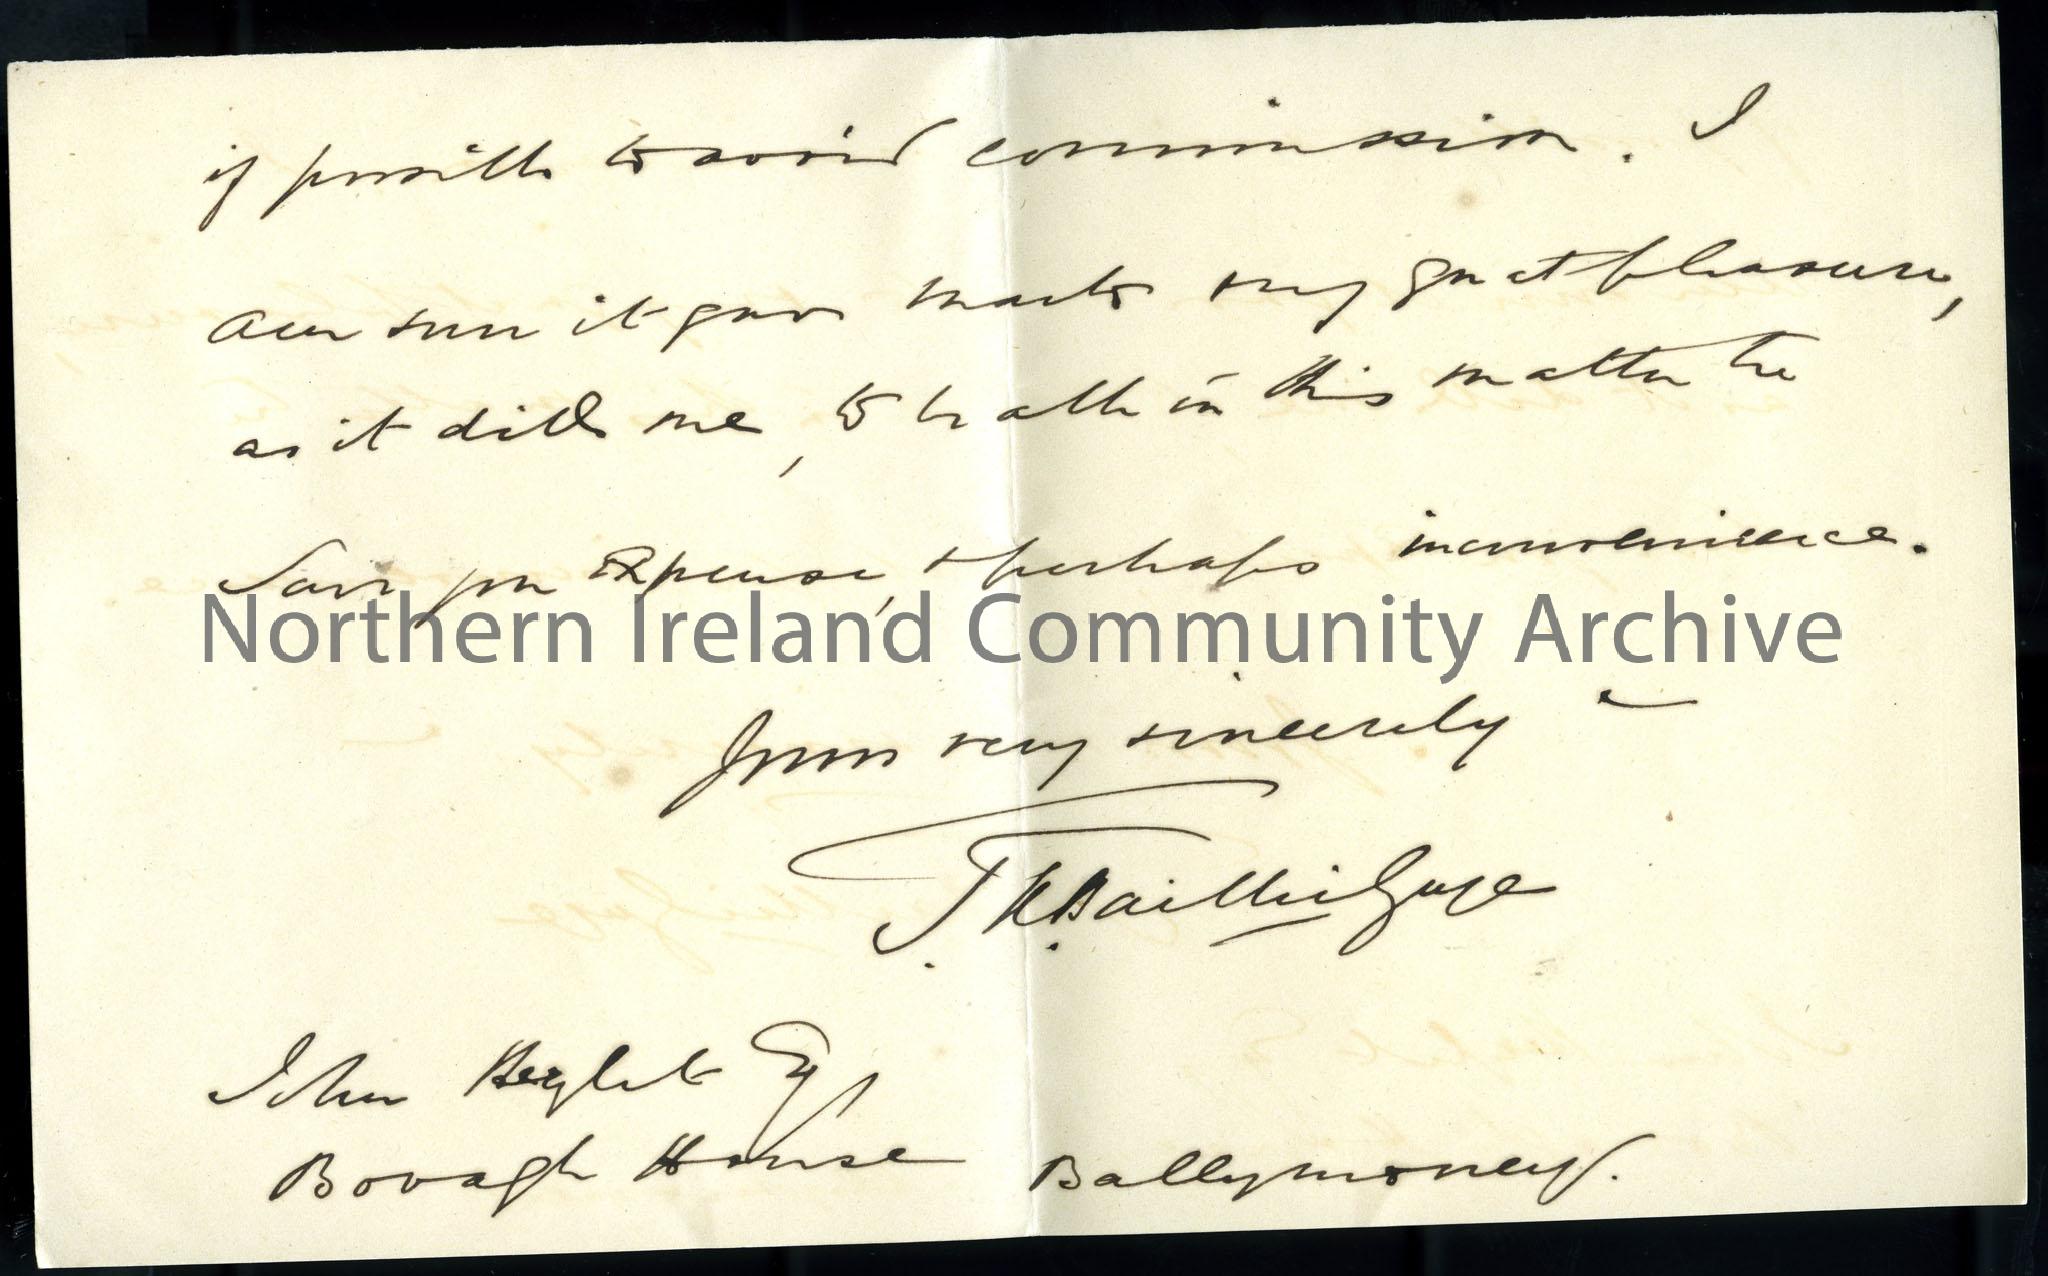 if possible to avoid commission. I
am sure it gave me great pleasure,
as it did me, to be able in this matter to
Save you Expense, & perhaps inconvenience.
Northern Ireland Community Archive
Yours very sincerely
Baillie Gage
John Heyland Esq
Bovagh House Ballymoney.